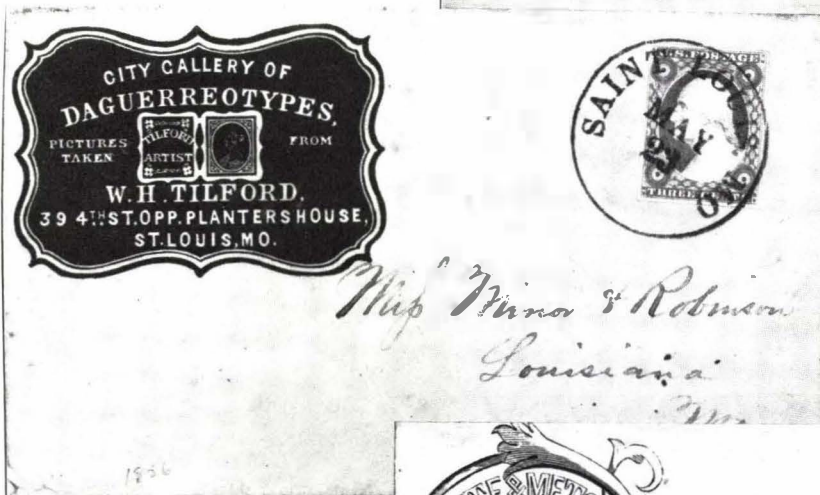 CITY GALLERY OF
DAGUERREOTYPES,
PICTURES TAKEN FROM
TILFORD
ARTIST
W.H.TILFORD.
39 4TH ST. OPP. PLANTERS HOUSE,
ST. LOUIS, MO.
U.S. POSTAGE.
SAINT LOUIS
MAY
MO
THREE
Miss Minor & Robinson
Louisiana
1856